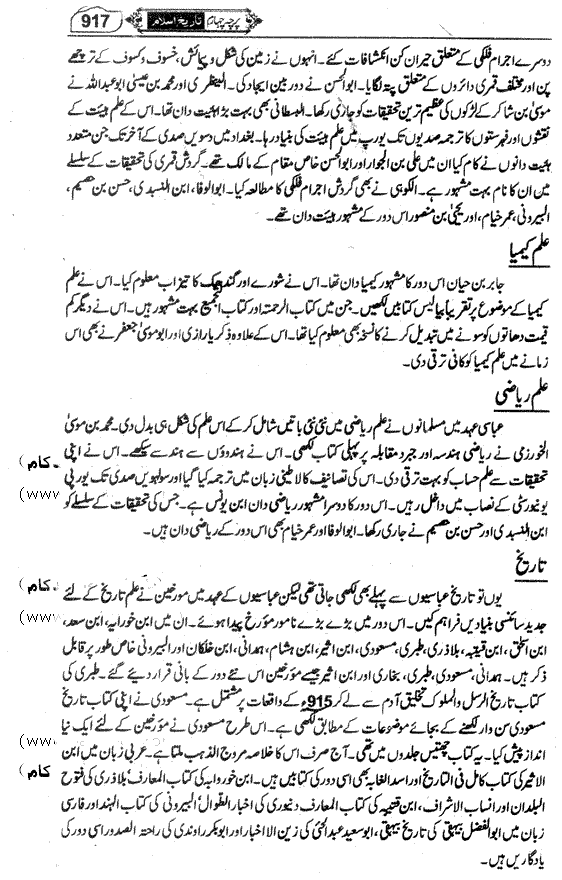 917 تاریخ اسلام پرچہ چہارم
دوسرے اجرام فلکی کے متعلق حیران کن انکشافات کئے۔ انہوں نے زمین کی شکل و پیمائش، خسوف و کسوف کے ترچھے
پن اور مختلف قمری دائروں کے متعلق پتہ لگایا۔ ابوالحسن نے دوربین ایجاد کی۔ المنظری اور محمد بن عیسیٰ ابوعبداللہ نے
موسیٰ بن شاکر کے لڑکوں کی عظیم ترین تحقیقات کو جاری رکھا۔ البسطانی بھی بہت بڑا ہیئت دان تھا۔ اس کے علم ہیئت کے
نقشوں اور فہرستوں کا ترجمہ صدیوں تک یورپ میں علم ہیئت کی بنیاد رہا۔ بغداد میں دسویں صدی کے آخر تک جن متعدد
ہئیت دانوں نے کام کیا ان میں علی بن الجوار اور ابوالحسن خاص مقام کے مالک تھے۔ گردش قمری کی تحقیقات کے سلسلے
میں ان کا نام بہت مشہور ہے۔ الکوہی نے بھی گردش اجرام فلکی کا مطالعہ کیا۔ ابوالوفا، ابن النسبدی، حسن بن ھصیم،
البیرونی، عمر خیام، اور یحییٰ بن منصور اس دور کے مشہور ہیئت دان تھے۔
علم کیمیا
جابر بن حیان اس دور کا مشہور کیمیا دان تھا۔ اس نے شورے اور گندھک کا تیزاب معلوم کیا۔ اس نے علم
کیمیا کے موضوع پر تقریباً بیالیس کتابیں لکھیں۔ جن میں کتاب الرحمتہ اور کتاب الجمیع بہت مشہور ہیں۔ اس نے دیگر کم
قیمت دھاتوں کو سونے میں تبدیل کرنے کا نسخہ بھی معلوم کیا تھا۔ اس کے علاوہ ذکریا رازی اور ابو موسیٰ جعفر نے بھی اس
زمانے میں علم کیمیا کو کافی ترقی دی۔
علم ریاضی
عباسی عہد میں مسلمانوں نے علم ریاضی میں نئی نئی باتیں شامل کر کے اس علم کی شکل ہی بدل دی۔ محمد بن موسیٰ
الخوارزمی نے ریاضی ہندسہ اور جبرو مقابلہ پر پہلی کتاب لکھی۔ اس نے ہندوؤں سے ہندسے سیکھے۔ اس نے اپنی
تحقیقات سے علم حساب کو بہت ترقی دی۔ اس کی تصانیف کا لاطینی زبان میں ترجمہ کیا گیا اور سولہویں صدی تک یورپی
یونیورسٹی کے نصاب میں داخل رہیں۔ اس دور کا دوسرا مشہور ریاضی دان ابن یونس ہے۔ جس کی تحقیقات کے سلسلے کو
ابن النسبدی اور حسن بن ھصیم نے جاری رکھا۔ ابوالوفا اور عمر خیام بھی اس دور کے ریاضی دان ہیں۔
تاریخ
یوں تو تاریخ عباسیوں سے پہلے بھی لکھی جاتی تھی لیکن عباسیوں کے عہد میں مورخین نے علم تاریخ کے لئے
جدید سائنسی بنیادیں فراہم کیں۔ اس دور میں بڑے بڑے نامور مؤرخ پیدا ہوئے۔ ان میں ابن خوراہہ، ابن سعد،
ابن اسحٰق، ابن قیتبہ، بلاذری، طبری، مسعودی، ابن اثیر، ابن ہشام، ہمدانی، ابن خلکان اور البیرونی خاص طور پر قابل
ذکر ہیں۔ ہمدانی، مسعودی، طبری، بخاری اور ابن اثیر جیسے مؤرخین اس نئے دور کے بانی قرار دیئے گئے۔ طبری کی
کتاب تاریخ الرسل والملوک تخلیق آدم سے لے کر 915ء کے واقعات پر مشتمل ہے۔ مسعودی نے اپنی کتاب تاریخ
مسعودی سن وار لکھنے کے بجائے موضوعات کے مطابق لکھی ہے۔ اس طرح مسعودی نے مؤرخین کے لئے ایک نیا
انداز پیش کیا۔ یہ کتاب چھتیس جلدوں میں تھی۔ آج صرف اس کا خلاصہ مروج الذہب ملتا ہے۔ عربی زبان میں ابن
الاثیر کی کتاب کامل فی التاریخ اور اسد الغابہ بھی اسی دور کی کتابیں ہیں۔ ابن خورابہ کی کتاب المعارف بلاذری کی فتوح
البلدان اور انساب الاشراف، ابن قتیبہ کی کتاب المعارف دنیوری کی اخبار الطوال البیرونی کی کتاب الہند اور فارسی
زبان میں ابوالفضل بیہقی کی تاریخ بیہقی، ابو سعید عبدالحئی کی زین الاخبار اور ابوبکر راوندی کی راحتہ الصدور اسی دور کی
یادگاریں ہیں۔
کام)
(www
کام)
(www
(www
کام)